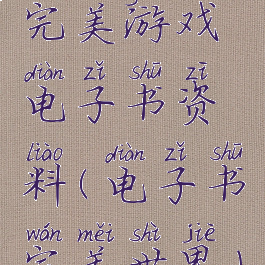 完美游戏
diàn zǐ shū zī
电子书资
liào diàn zǐ shū
料(电子书
wán měi shì jiè
完美世界)